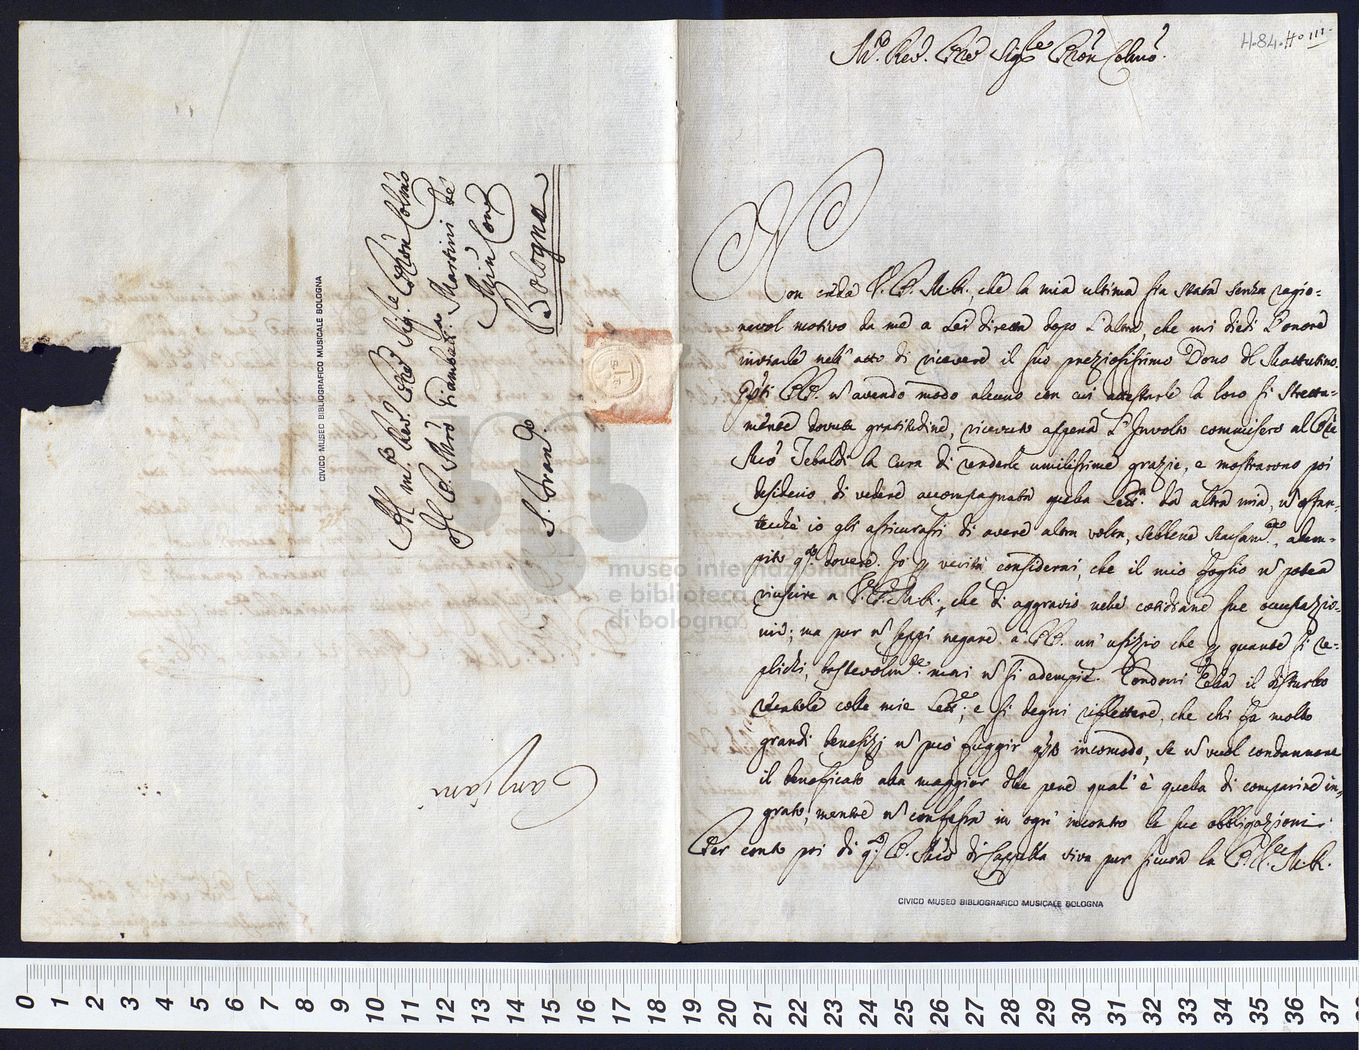 Al M.to Rev.do P.re Sig.re P.ron Colmo
Il P. M.ro Giambatt.a Martini de
Min: Con:
Bologna
S. Fran.co
Canziani
CIVICO MUSEO BIBLIOGRAFICO MUSICALE BOLOGNA
museo internazionale
e biblioteca
di bologna
H.84. H.o III.
M.to Rev.do P.re Sig.re P.ron Colmo.
Non creda V. P. M. R., che la mia ultima sia stata senza ragio-
nevol motivo da me a Lei diretta dopo l'altra che mi diedi l'onore
inviarle nell'atto di ricevere il suo preziosissimo Dono del Mattutino.
Q.sti PP. n avendo modo alcuno con cui attestarle la loro sì stretta-
mente dovuta gratitudine, ricevuto appena l'Involto commisero al P.re
M.ro Tebaldi la cura di renderle umilissime grazie, e mostrarono poi
desiderio di vedere accompagnata quella Lett.a da altra mia, n ostan-
tecchè io gli assicurassi di avere altra volta, sebbene scarsam.e, adem-
pito q.to dovere. Io p verità considerai, che il mio foglio n potea
riuscire a V. P. M. R., che di aggravio nelle cotidiane sue occupazio-
ni; ma pur n seppi negare a PP. un ufizio che p quante si re-
plichi, bastevolm.e mai n si adempie. Condoni Ella il disturbo
recatole colle mie Lett.e, e si degni riflettere, che chi fa molto
grandi benefizj n può fuggir q.sto incomodo, se n vuol condannare
il beneficato alla maggior delle pene qual'è quella di comparire in-
grato, mentre n confessa in ogni incontro le sue obbligazioni.
Per conto poi di q.to P. M.ro di Cappella viva pur sicura la P. V. M. R.
CIVICO MUSEO BIBLIOGRAFICO MUSICALE BOLOGNA
0 1 2 3 4 5 6 7 8 9 10 11 12 13 14 15 16 17 18 19 20 21 22 23 24 25 26 27 28 29 30 31 32 33 34 35 36 37